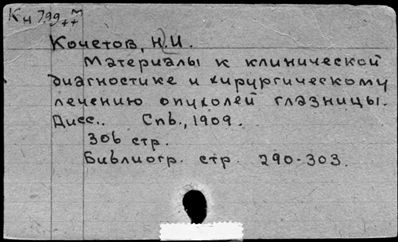 Кочетов, Н.И.
Материалы к клинической
диагностике и хирургическому
лечению опухолей глазницы.
Дисс.. Спб., 1909.
306 стр.
Библиогр. стр. 290-303.